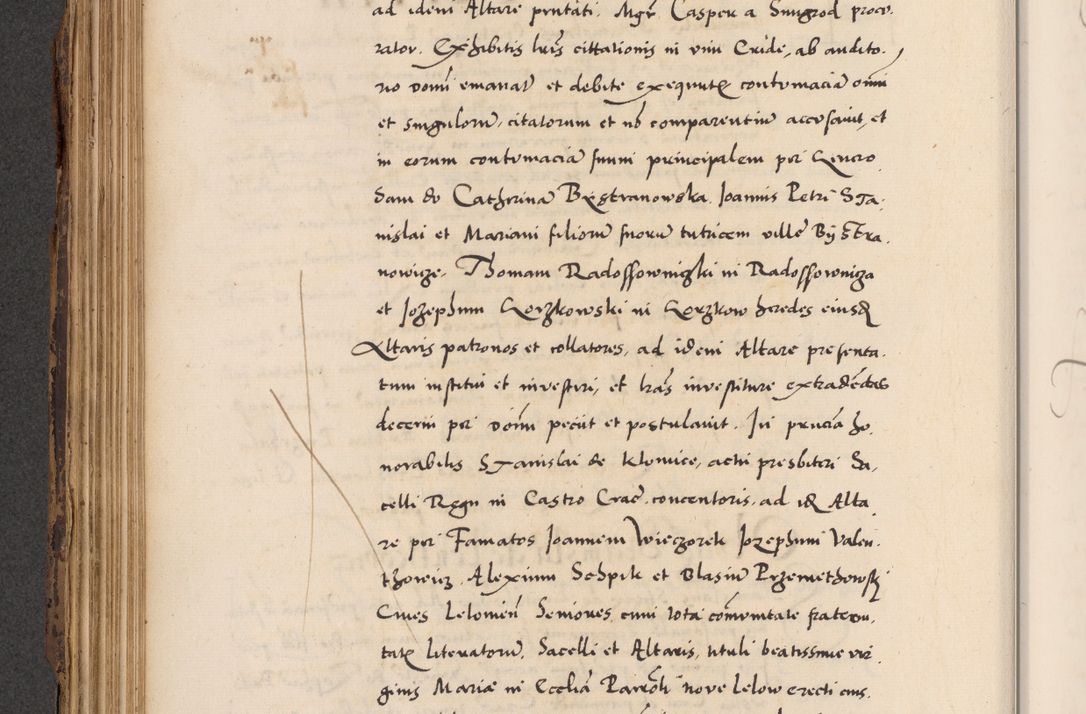 ad idem Altare pntati. Mgr Casper a Smigrod procu.
rator. Exhibitis lris cittationis in vim Cride, ab audito.
rio domi emanat et debite exequut contumacia omni
et singuloru, citatorum et no comparentiu accusavit, et
in eorum contumacia suum principalem per Genero
sam do Catherina Bystranowska Joannis Petri Sta.
nislai et Mariani filioru suoru tutricem ville Bystra.
nowicze. Thomam Radossowniczki in Radossownicza
et Jozephum Gorzkowski in Gorzkow heredes eiusd
Altaris patronos et collatores, ad idem Altare presenta.
tum institui et investiri, et lras investiture extradendas
decerni per domi peciit et postulavit. In prncia ho.
norabilis Stanislai de Klomice, acti presbiteri Sa,
celli Regii in Castro Crac. concentoris, ad id Alta
re per Famatos Joannem Wieczorek Jozephum Valen.
thowicz Alexium Schpik et Blasiu Przemethowski
Cives Lelowien Seniores cum tota comunitate fratern.
tatis literatoru. Sacelli et Altaris, tituli beatissime vir
ginis Mariæ in Ecclia Parroli nove Lelow erecti ans.